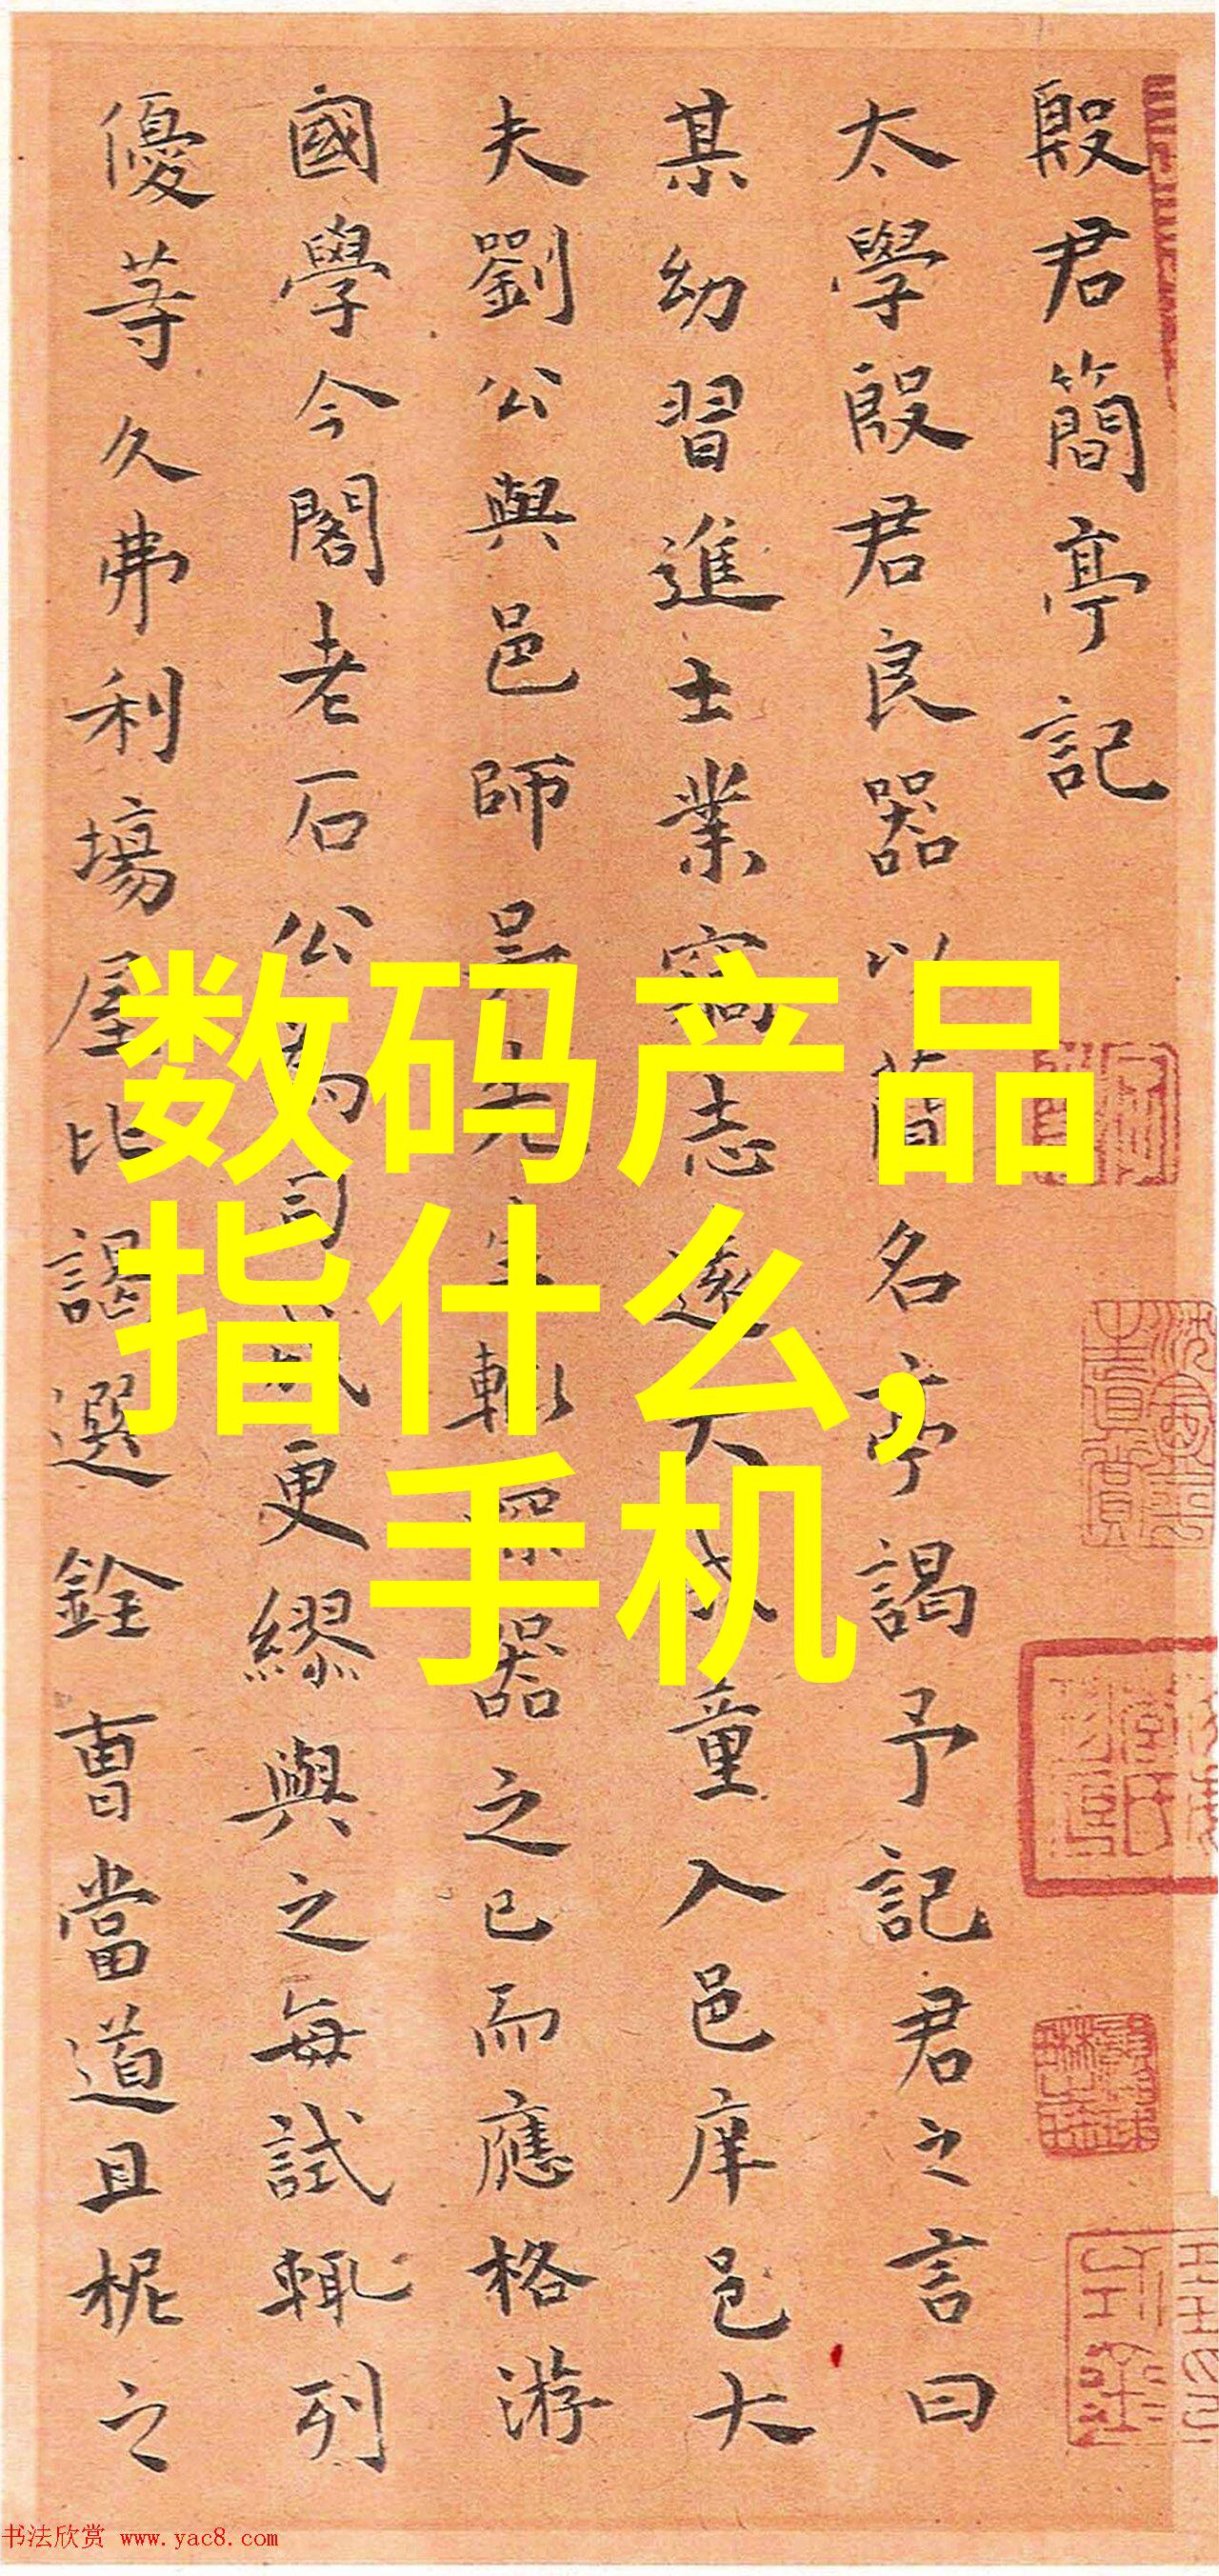 殷君簡亭記
太學殷君良器以簡名亭謁予記君之言曰
某幼習進士業竊志遠大成童入邑庠邑大
夫劉公與邑師吳先生輒深器之已而應格游
國學今閣老石公為司成更繆與之每試輒列
優等久弗利場屋比謁選銓曹當道且柅之
数码产品
指什么,
手机
书法欣赏 www.yac8.com